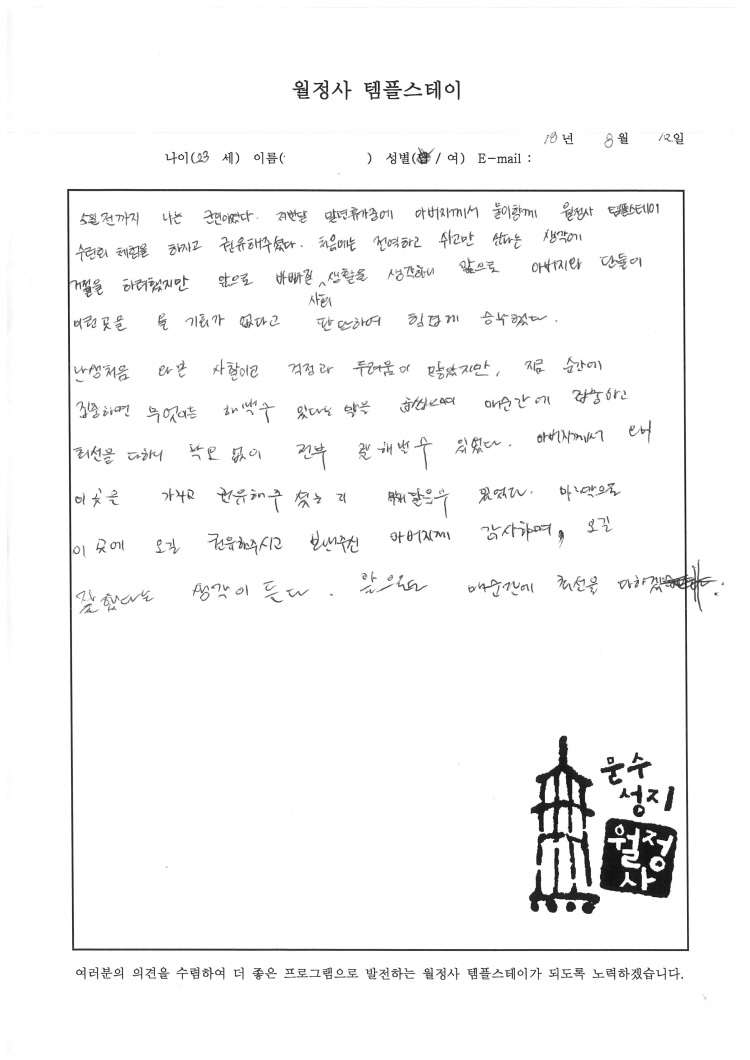 월정사 템플스테이
18년 8월 12일
나이(23 세) 이름( ) 성별( / 여) E-mail :
5일 전까지 나는 군인이었다. 저번달 말년휴가중에 아버지께서 둘이함께 월정사 템플스테이
수련회 체험을 하자고 권유해주셨다. 처음에는 전역하고 쉬고만 싶다는 생각에
거절을 하려했지만 앞으로 바빠질 사회 생활을 생각하니 앞으로 아버지와 단둘이
이런곳을 올 기회가 없다고 판단하여 힘겹게 승낙했다.
난생처음 와본 사찰이라 걱정과 두려움이 많았지만, 지금 순간에
집중하면 무엇이든 해낼수 있다는 말을 매순간에 집중하고
최선을 다하니 낙오 없이 전부 잘 해낼수 있었다. 아버지께서
이곳을 가자고 권유해주셨는지 깨달을수 있었다. 마지막으로
이 곳에 오길 권유해주시고 보내주신 아버지께 감사하며, 오길
잘했다는 생각이 든다. 앞으로도 매순간에 최선을 다하겠
문수
성지
월정
사
여러분의 의견을 수렴하여 더 좋은 프로그램으로 발전하는 월정사 템플스테이가 되도록 노력하겠습니다.